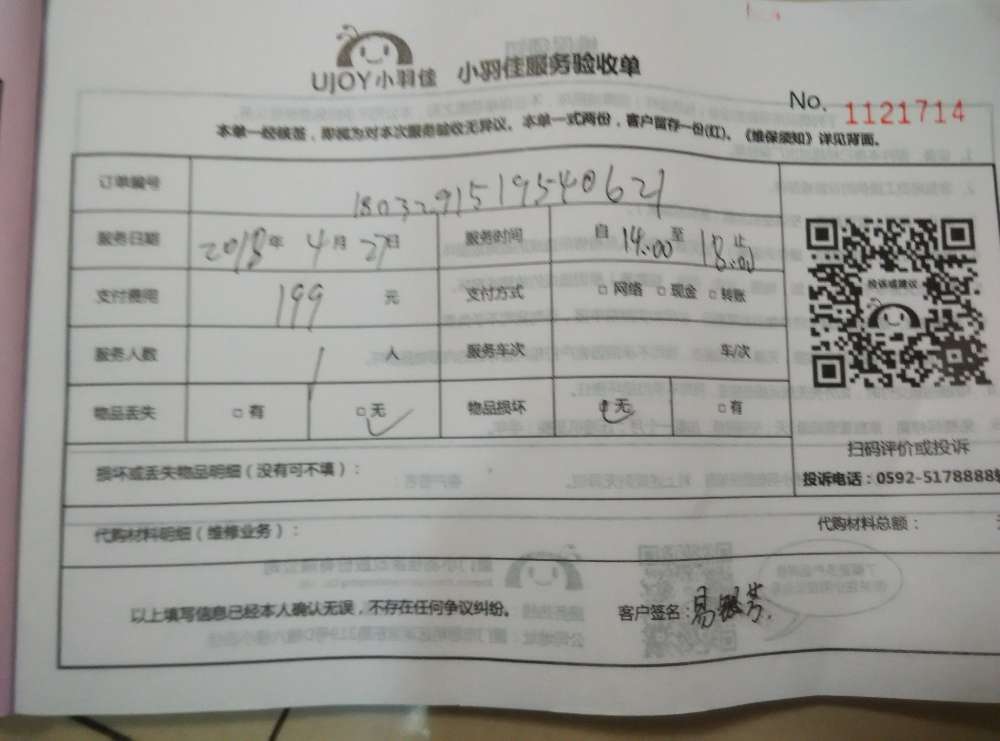 UJOY小羽佳 小羽佳服务验收单
No. 1121714
本单一经核签，即视为对本次服务验收无异议。本单一式两份，客户留存一份(红)。《维保须知》详见背面。
订单编号 18032915195540621
服务日期 2018年 4月 27日 服务时间 自 14:00 至 18:00 止
支付费用 199 元 支付方式 □ 网络 □ 现金 □ 转账
服务人数 1 人 服务车次 车/次
投诉或建议
物品丢失 □ 有 □ 无 ✓ 物品损坏 □ 无 ✓ □ 有
扫码评价或投诉
损坏或丢失物品明细（没有可不填）：
投诉电话：0592-5178888
代购材料明细（维修业务）： 代购材料总额：
以上填写信息已经本人确认无误，不存在任何争议纠纷。 客户签名：易